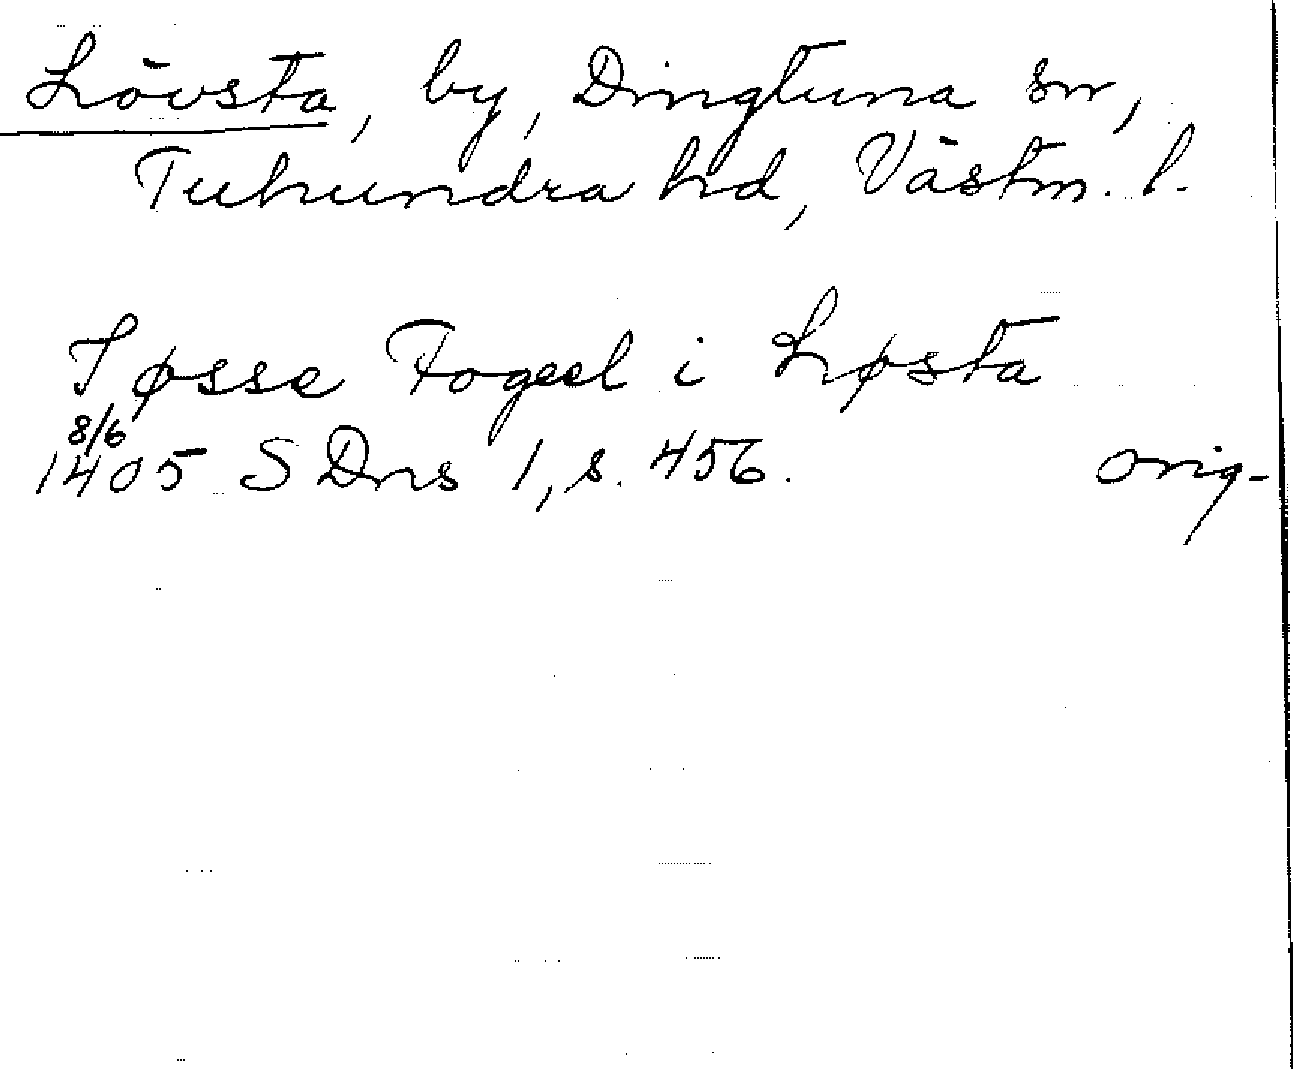 Lövsta, by, Dingtuna sn,
Tuhundra hd, Västm. l.
Jøsse Fogeel i Løsta
8/6
1405 SDns 1, s. 456. orig.